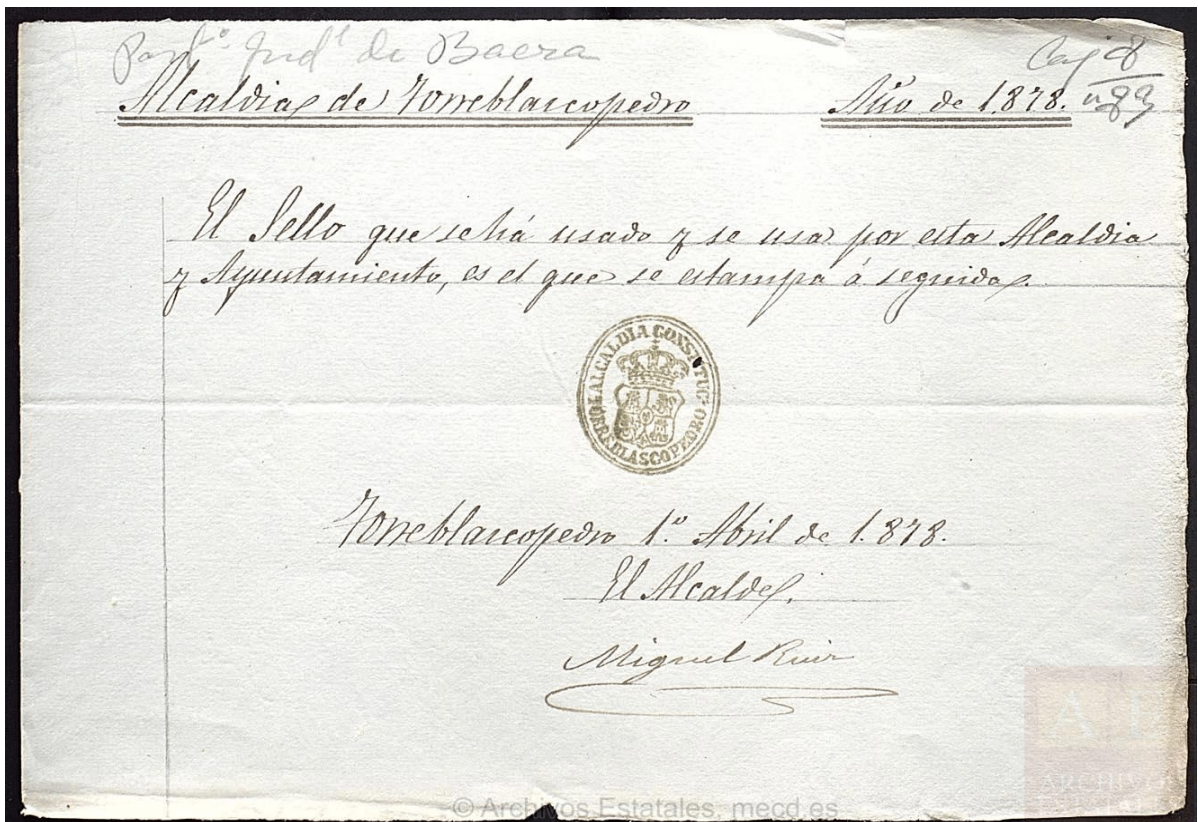 Part.º Jud.l de Baeza
Caj 8
n 83
Alcaldia de Torreblascopedro Año de 1878.
El Sello que se há usado y se usa por esta Alcaldia
y Ayuntamiento, es el que se estampa á seguida.
ALCALDIA CONSTITUC.
TORREBLASCOPEDRO
Torreblascopedro 1.º Abril de 1.878.
El Alcalde.
Miguel Ruiz
A E
ARCHIVOS
ESTATALES
© Archivos Estatales, mecd.es